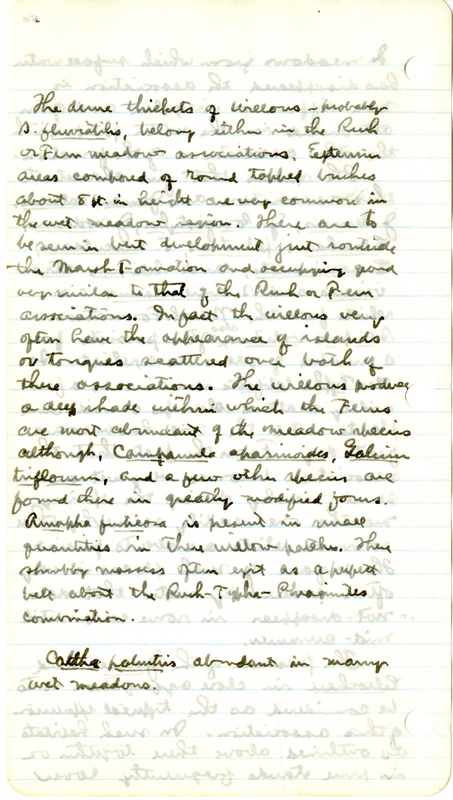 The dense thickets of willows – probably
S. fluviatilis, belong either in the Rush
or Fern meadow associations. Extensive
areas composed of round topped bushes
about 8 ft. in height are very common in
the wet meadow region. These are to
be seen in best development just outside
the Marsh Formation and occupying ground
very similar to that of the Rush or Fern
associations. In fact the willows very
often have the appearance of islands
or tongues scattered over both of
these associations. The willows produce
a deep shade within which the Ferns
are most abundant of the meadow species
although, Campanula aparinoides, Galium
triflorum, and a few other species are
found there in greatly modified forms.
Amorpha fruticosa, is present in small
quantities in these willow patches. These
shrubby masses often exist as a perfect
belt about the Rush-Typha-Phragmites
combination.
Caltha palustris abundant in many
wet meadows.